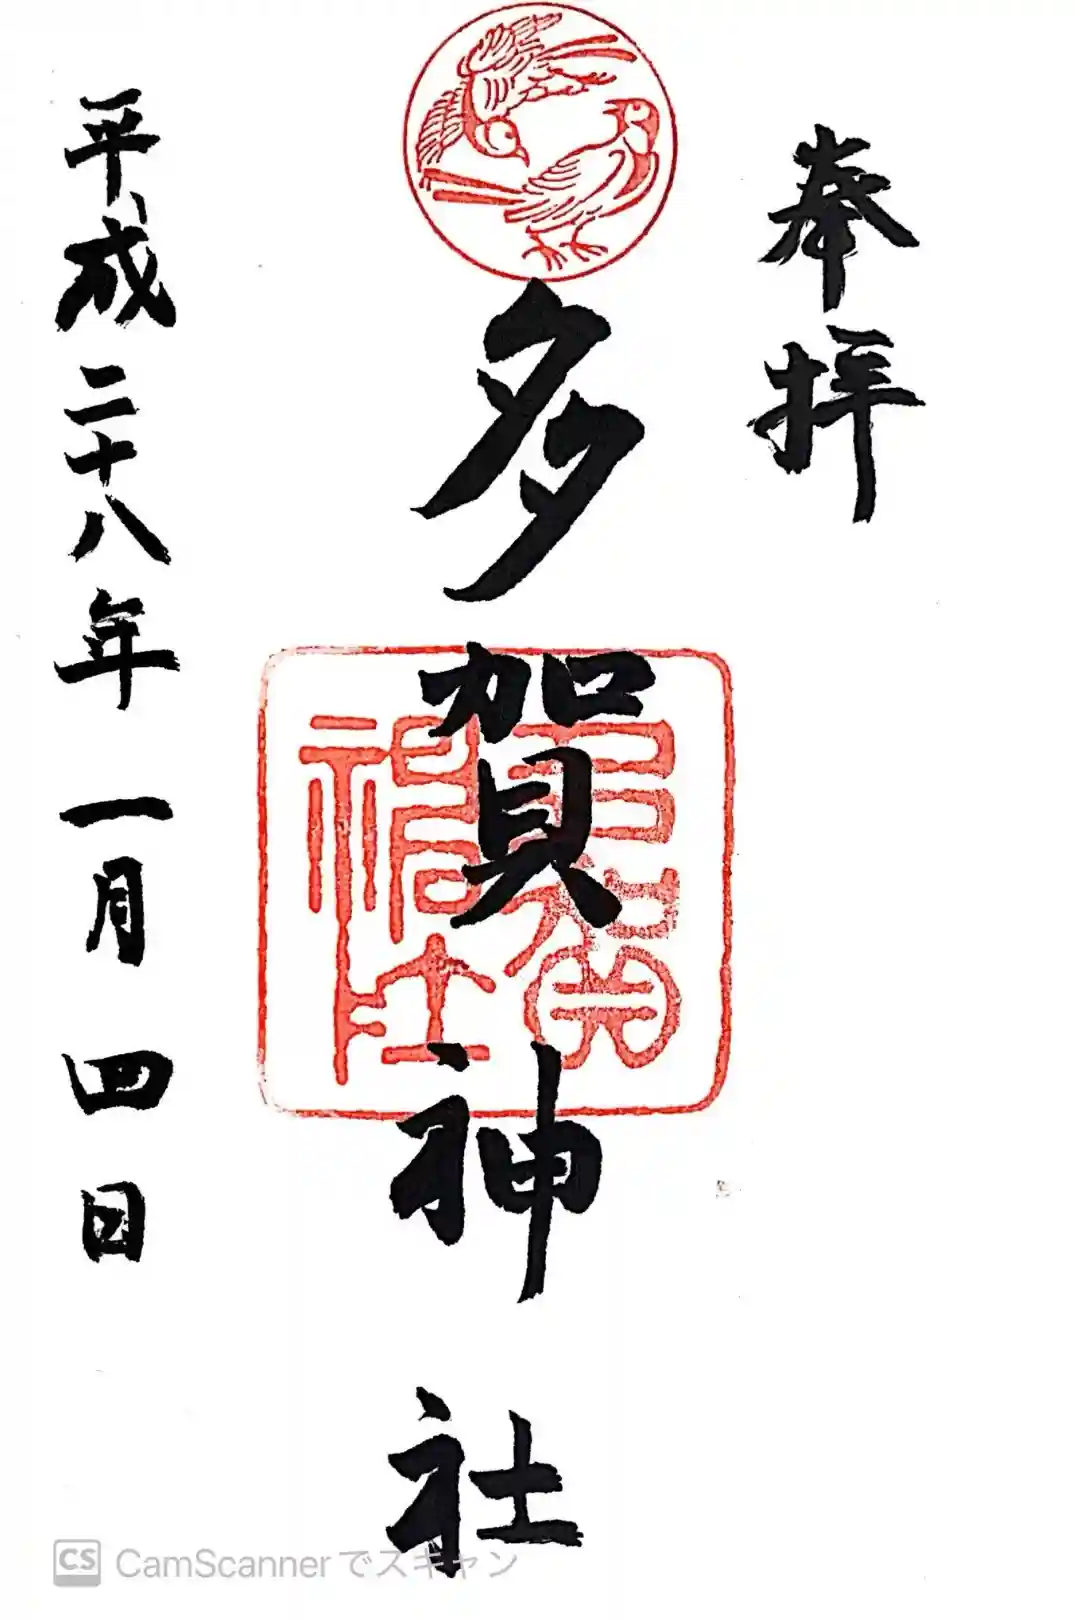 奉拝
多賀神社
多賀神社
平成二十八年一月四日
CS CamScannerでスキャン